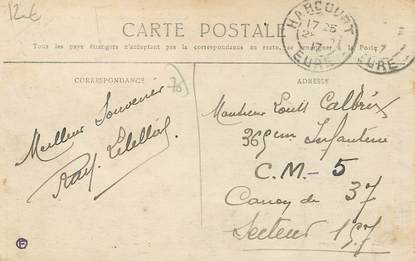 12€
CARTE POSTALE
Tous les pays étrangers n'acceptent pas la correspondance au recto, se renseigner à la Poste
HARCOURT
17 25
17
EURE
EURE
CORRESPONDANCE
ADRESSE
Meilleur Souvenir
Ray.
Monsieur Louis Calbrix
369em Infanterie
C. M - 5
de 37
Secteur 157